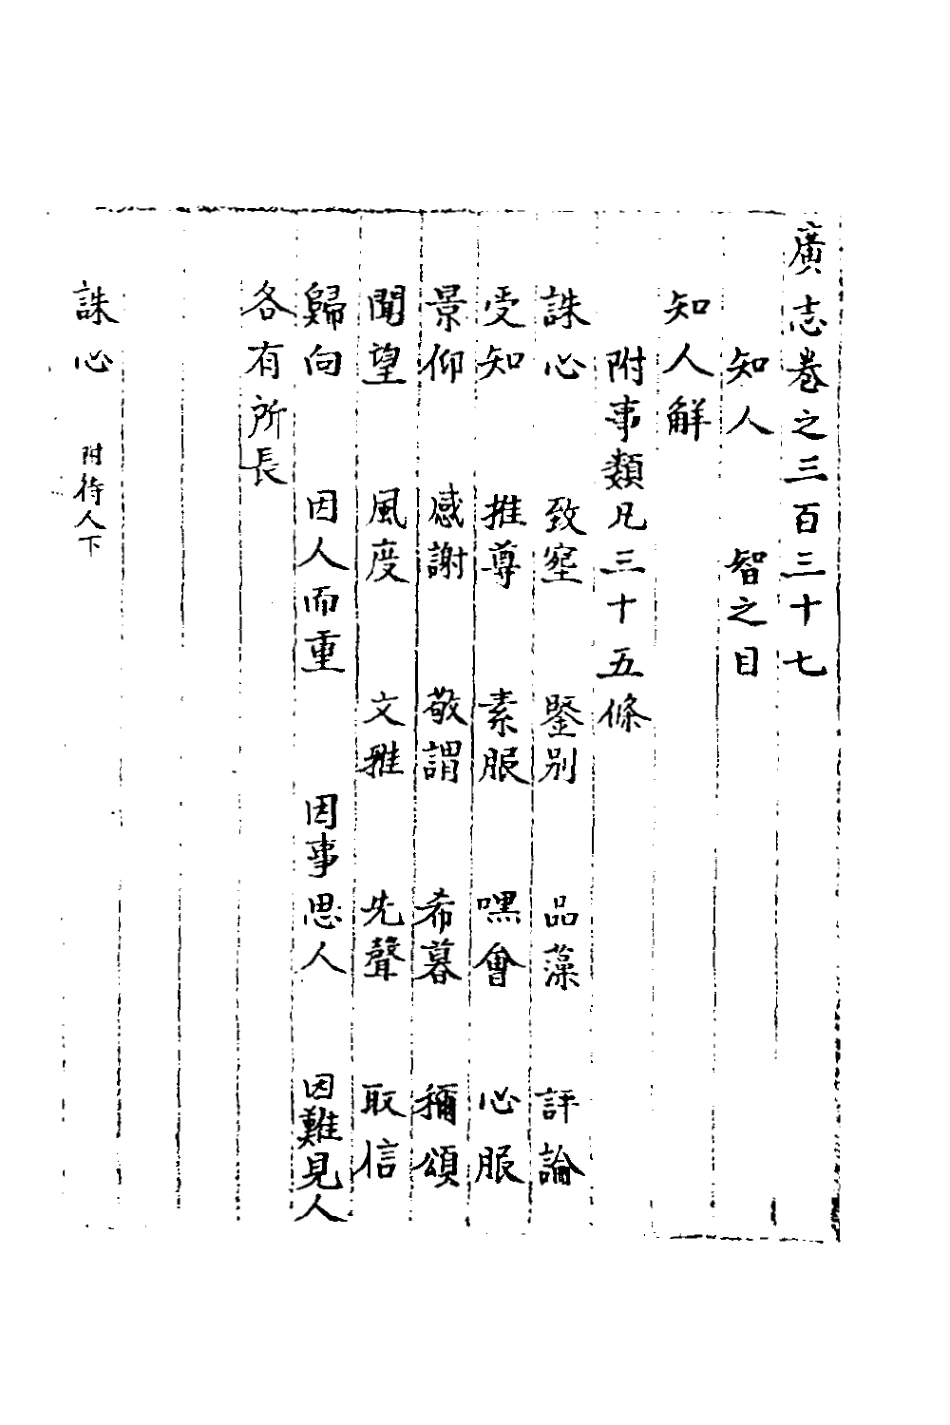 廣志卷之三百三十七
知人　　智之目
知人解
附事類凡三十五條
誅心　致窒　鑒別　品藻　評論
受知　推尊　素服　嘿會　心服
景仰　感謝　敬謂　希暮　稱頌
聞望　風度　文雅　先聲　取信
歸向　因人而重　因事思人　因難見人
各有所長
誅心　附待人下